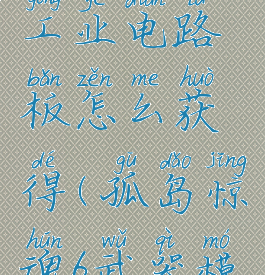 gōng yè diàn lù
工业电路
bǎn zěn me huò
板怎么获
dé gū dǎo jīng
得(孤岛惊
hún wǔ qì mó
魂6武器模